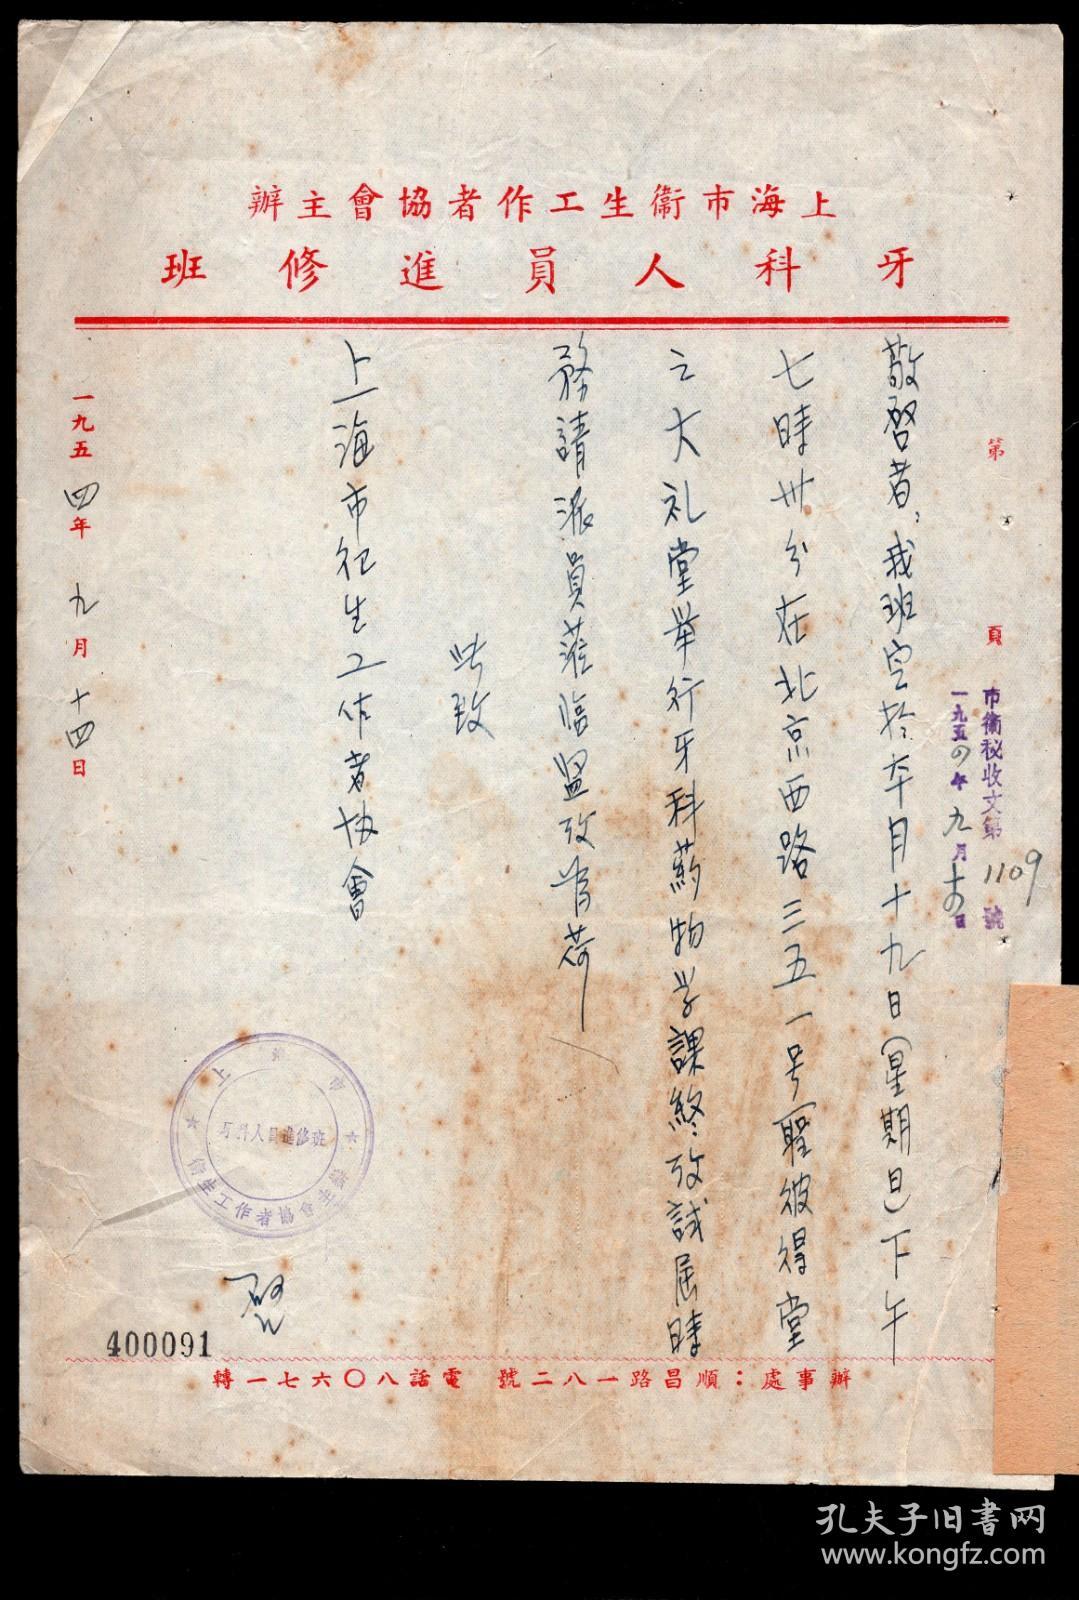 上海市衞生工作者協會主辦
牙科人員進修班
第 頁
市衞秘收文第1109號
一九五四年九月十四日
敬啓者：我班定於本月十九日（星期日）下午
七時卅分在北京西路三五一号（聖彼得堂
之大礼堂舉行牙科葯物学課終攷試屆時
務請派員蒞临监攷為荷
此致
上海市衞生工作者协會
上海市衞生工作者協會主辦
牙科人員進修班
啓
一九五四年九月十四日
400091
辦事處：順昌路一八二號 電話八〇六七一轉
孔夫子旧书网
www.kongfz.com